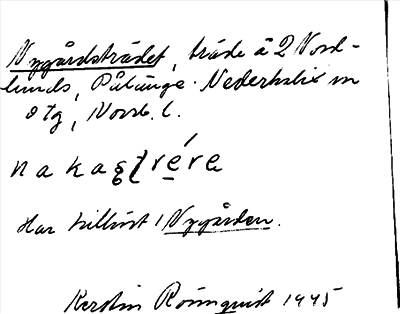 Nygårdsträdet, träde å 2 Nord-
lunds, Påläng. Nederkalix sn
o tg, Norrb. l.
nakastrére
Har tillhört 1 Nygården.
Kerstin Rönnquist 1945